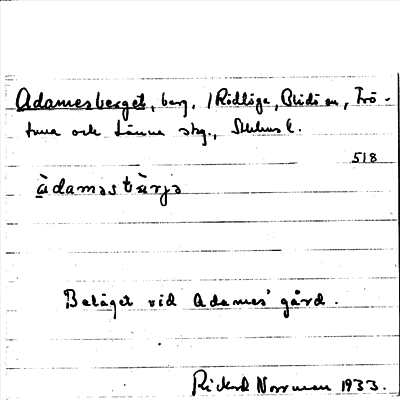 Adamesberget, berg, i Rödlöga, Blidö sn, Frö-
tuna och Länna skg., Sthlms l.
518
àdaməsbàrjə
Beläget vid Adames' gård.
Rickard Norrman 1933.